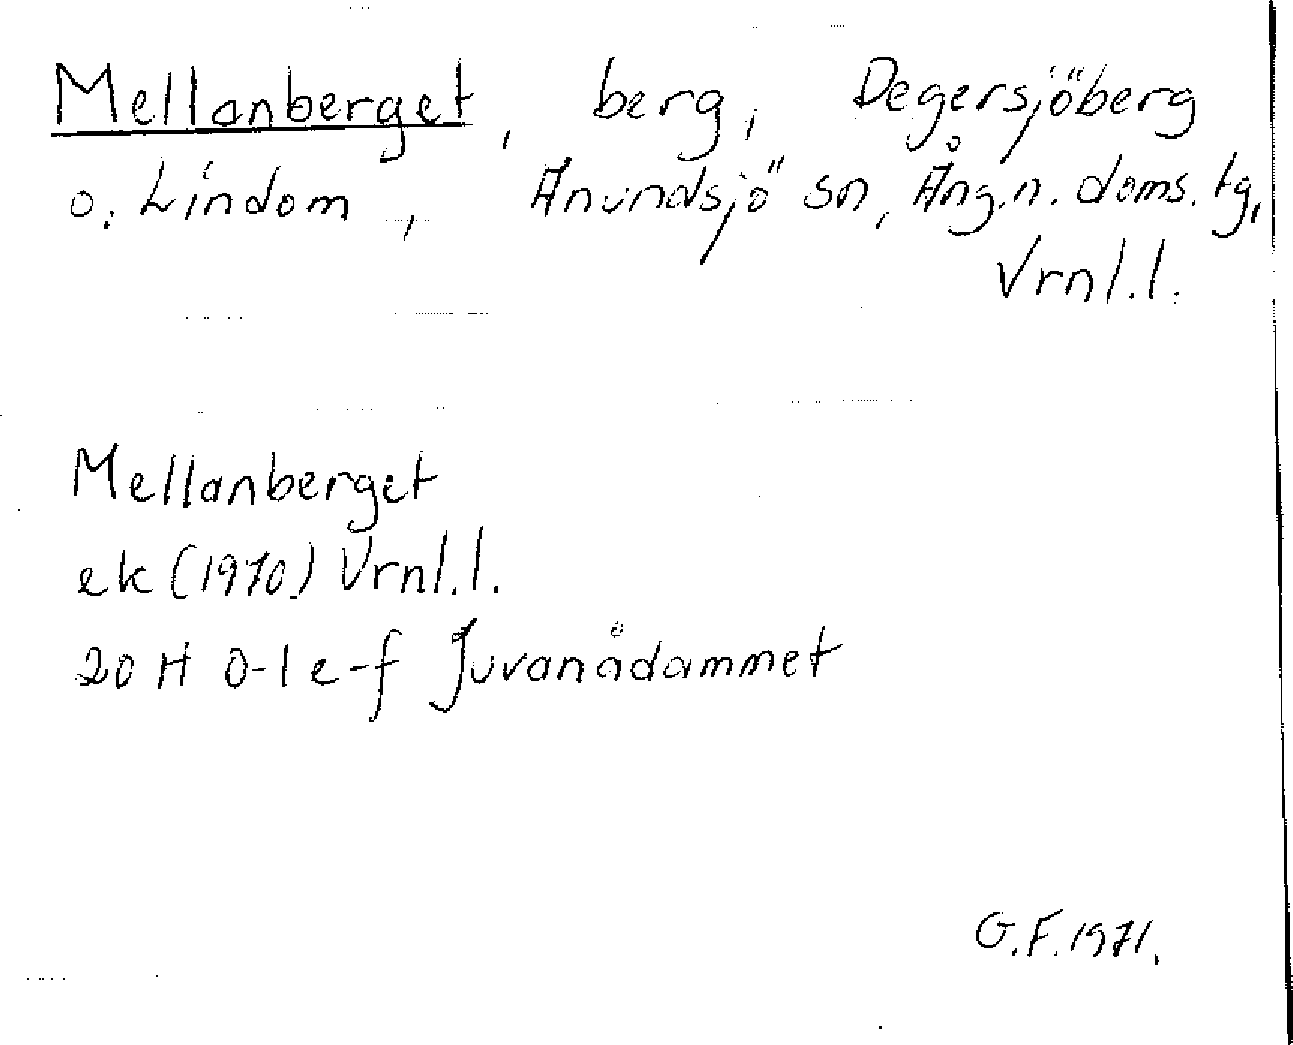 Mellanberget, berg, Degersjöberg
o. Lindom, Anundsjö sn, Ång.n. doms. tg,
Vrnl.l.
Mellanberget
ek (1970) Vrnl.l.
20 H 0-1 e-f Juvanådammet
G.F. 1971.